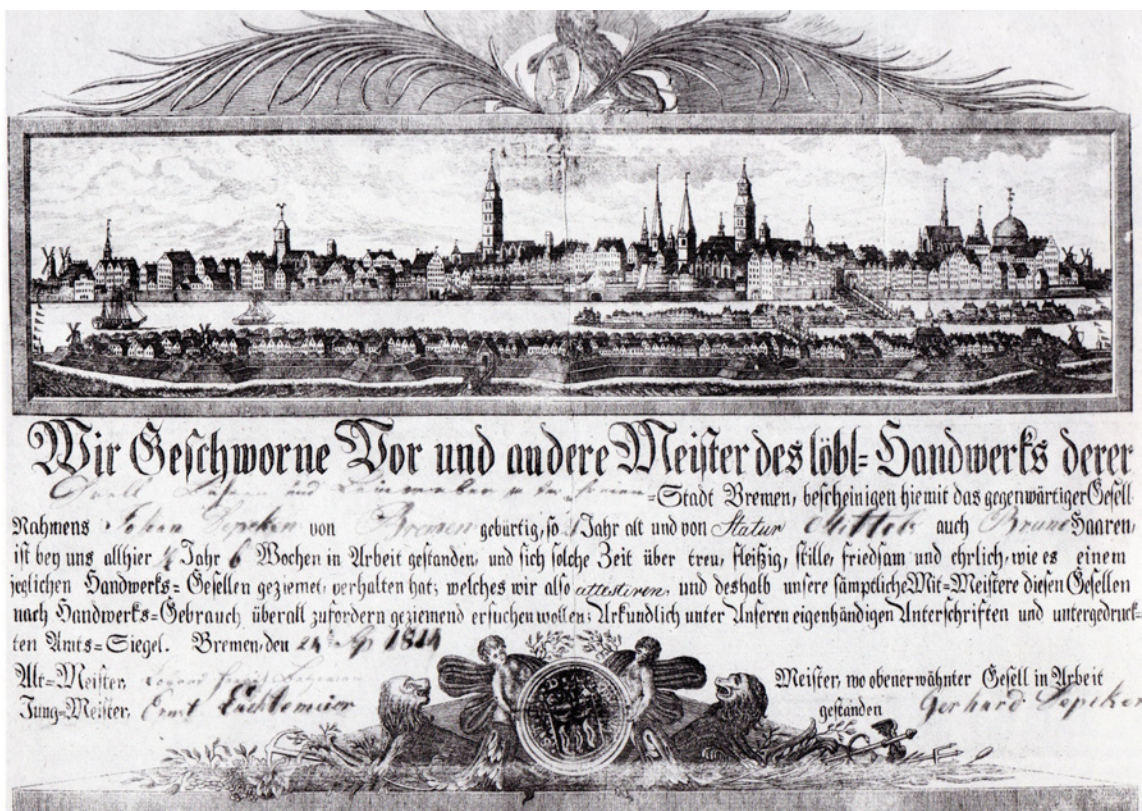 Wir Geschworne Vor und andere Meister des löbl= Handwerks derer
und Leinweber =Stadt Bremen, bescheinigen hiemit das gegenwärtiger Gesell
Nahmens Johan Depcken von Bremen gebürtig, so Jahr alt und von Statur Mittel auch Braune Haaren,
ist bey uns allhier Jahr 6 Wochen in Arbeit gestanden, und sich solche Zeit über treu, fleißig, stille, friedsam und ehrlich, wie es einem
jeglichen Handwerks= Gesellen geziemet, verhalten hat; welches wir also attestiren, und deshalb unsere sämptliche Mit=Meistere diesen Gesellen
nach Handwerks=Gebrauch überall zufordern geziemend ersuchen wollen; Urkundlich unter Unseren eigenhändigen Unterschriften und untergedruck=
ten Amts=Siegel. Bremen, den 24 1814
Alt=Meister,
Jung=Meister, Ernst
Meister, wo obenerwähnter Gesell in Arbeit
gestanden Gerhard Depcken